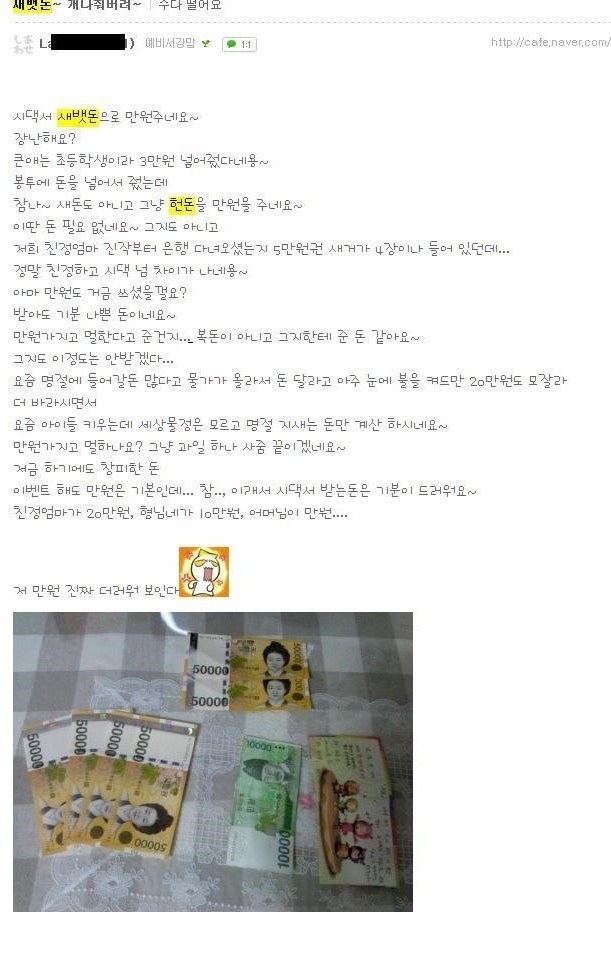 새뱃돈~ 개나줘버려~ | 수다 떨어요
예비서강맘
1:1
http://cafe.naver.com/
시댁서 새뱃돈으로 만원주네요~
장난해요?
큰애는 초등학생이라 3만원 넣어줬다네용~
봉투에 돈을 넣어서 줬는데
참나~ 새돈도 아니고 그냥 헌돈을 만원을 주네요~
이딴 돈 필요 없네요~ 그지도 아니고
저희 친정엄마 진작부터 은행 다녀오셨는지 5만원권 새거가 4장이나 들어 있던데...
정말 친정하고 시댁 넘 차이가 나네용~
아마 만원도 거금 쓰셨을껄요?
받아도 기분 나쁜 돈이네요~
만원가지고 멀한다고 준건지... 복돈이 아니고 그지한테 준 돈 같아요~
그지도 이정도는 안받겠다...
요즘 명절에 들어갈돈 많다고 물가가 올라서 돈 달라고 아주 눈에 불을 켜드만 20만원도 모잘라
더 바라시면서
요즘 아이들 키우는데 세상물정은 모르고 명절 지새는 돈만 계산 하시네요~
만원가지고 멀하나요? 그냥 과일 하나 사줌 끝이겠네요~
저금 하기에도 창피한 돈
이벤트 해도 만원은 기본인데... 참.., 이래서 시댁서 받는돈은 기분이 드러워요~
친정엄마가 20만원, 형님네가 10만원, 어머님이 만원....
저 만원 진짜 더러워 보인다
50000
50000
50000
50000
50000
50000
50000
10000
10000